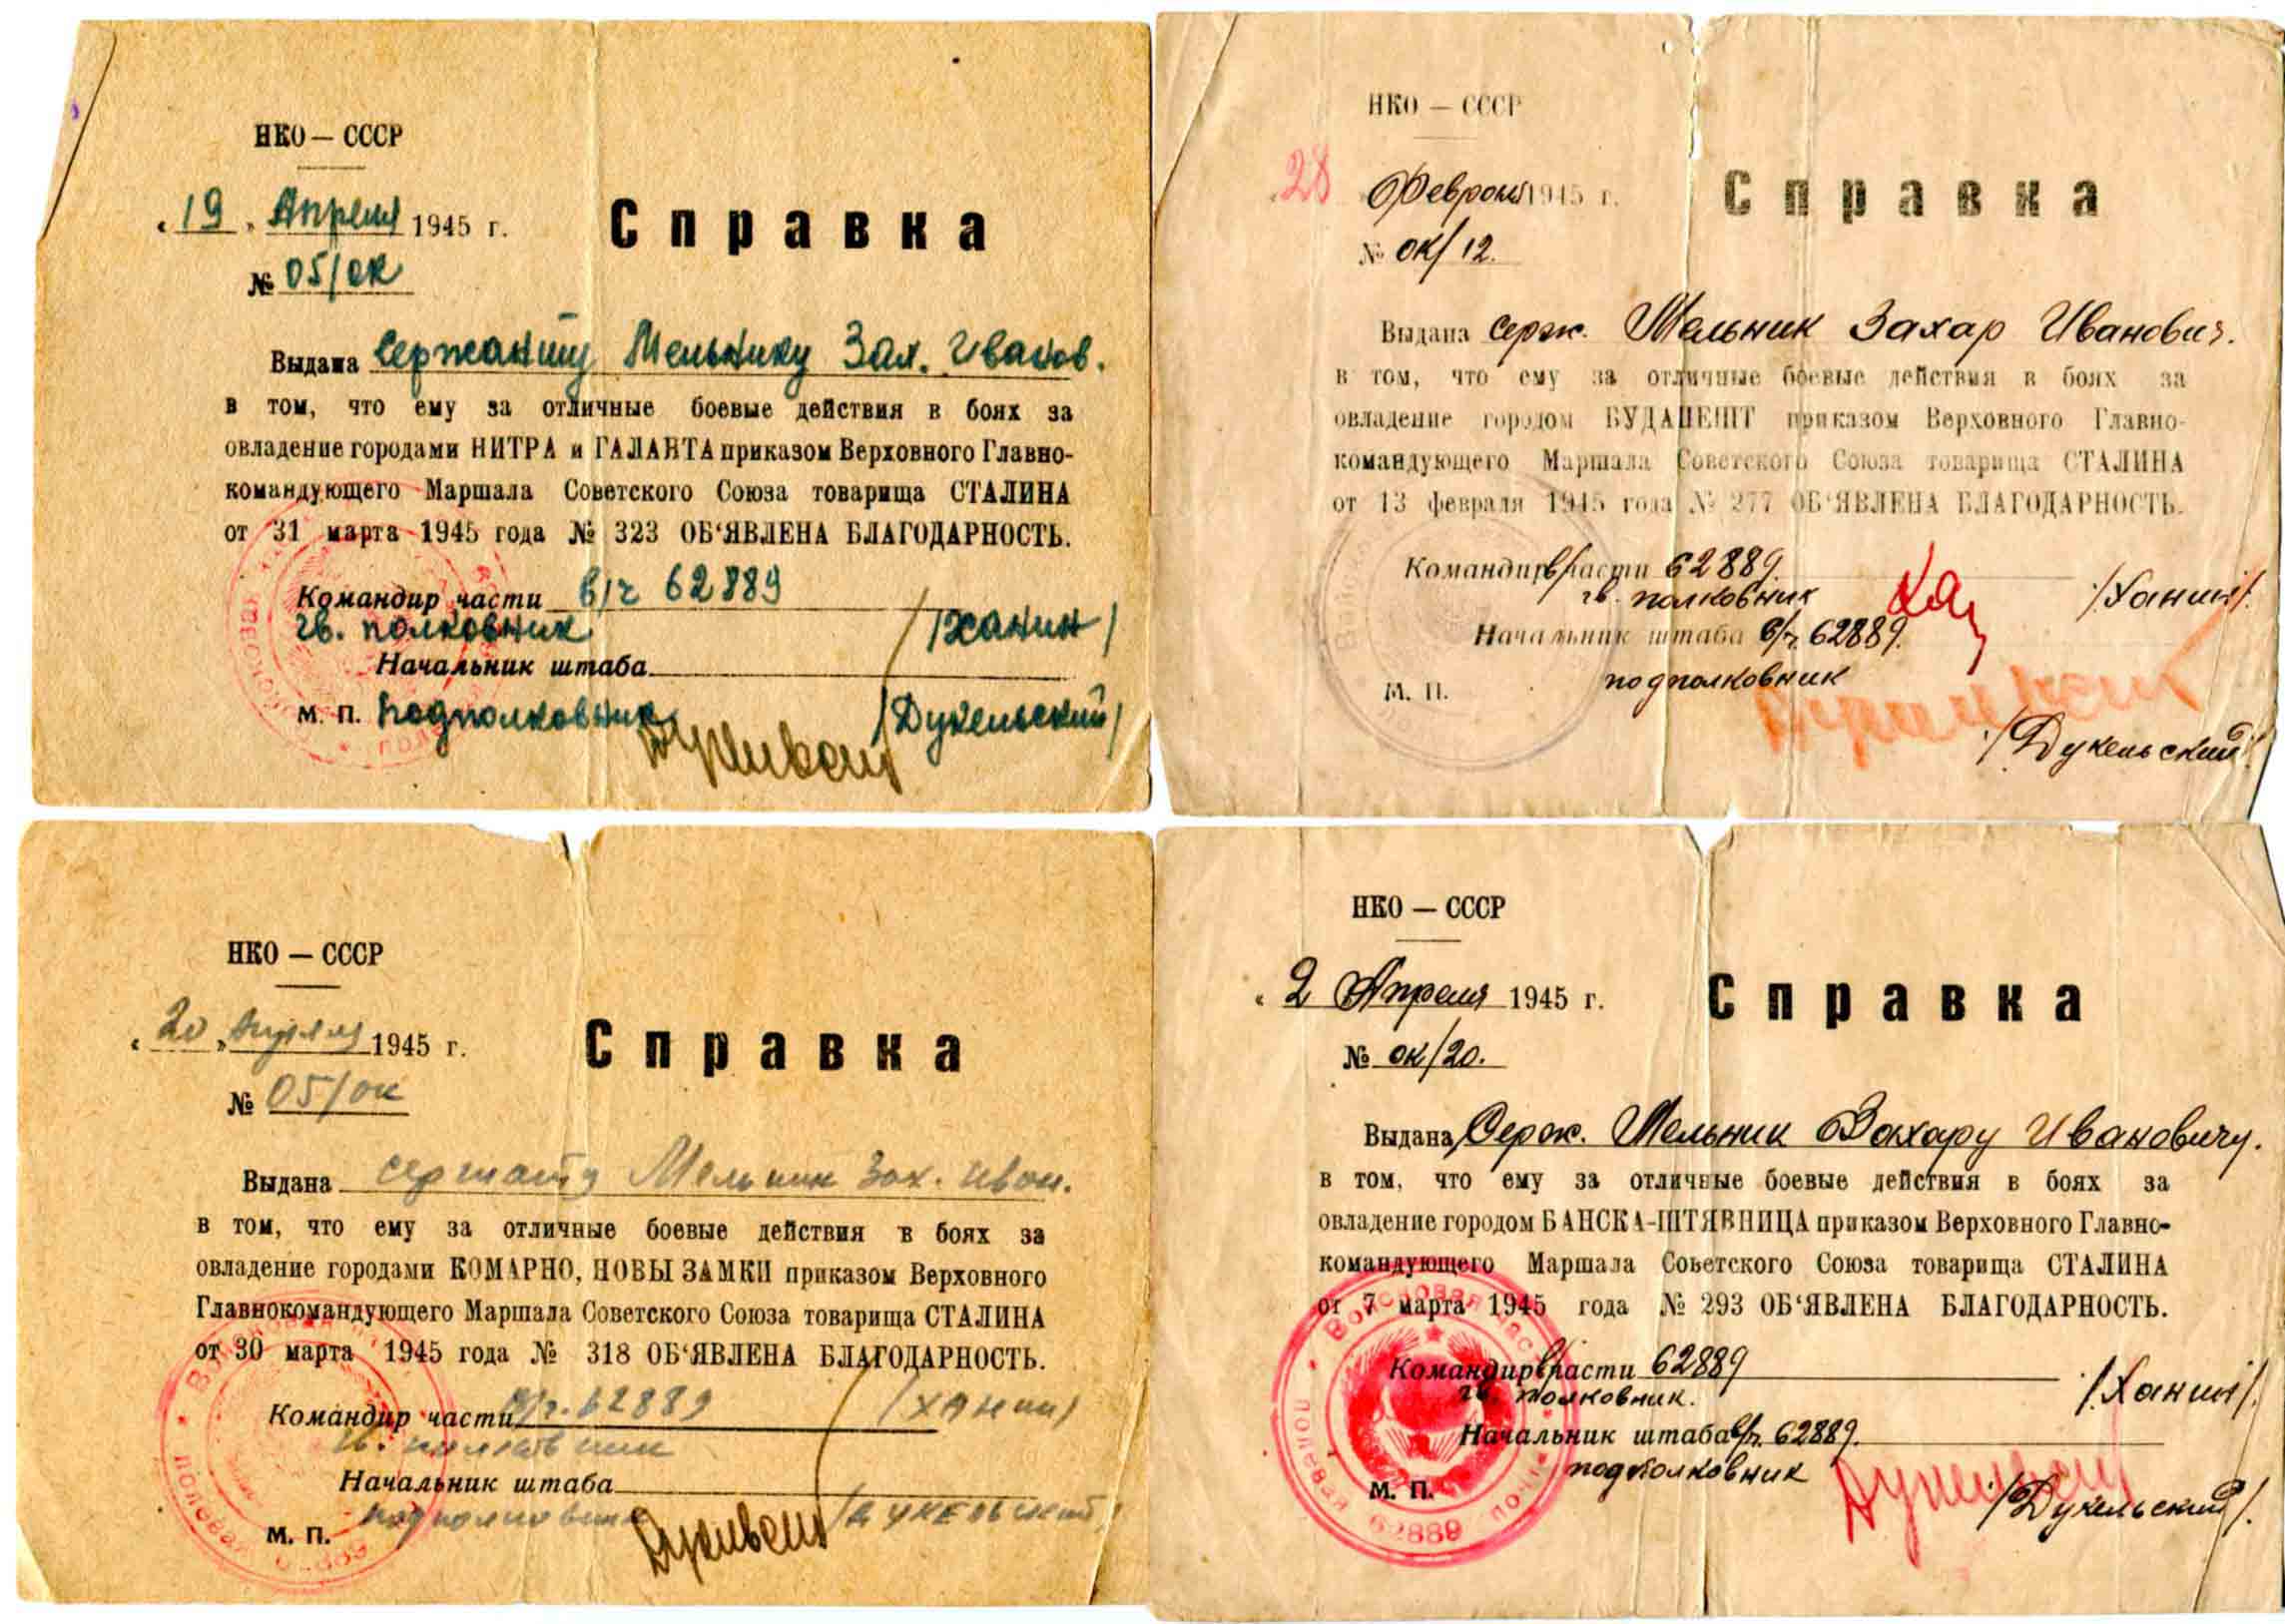 НКО — СССР
« 19 » Апреля 1945 г.
Справка
№ 05/ок
Выдана Сержанту Мельнику Зах. Иванов.
в том, что ему за отличные боевые действия в боях за
овладение городами НИТРА и ГАЛАНТА приказом Верховного Главно-
командующего Маршала Советского Союза товарища СТАЛИНА
от 31 марта 1945 года № 323 ОБ‘ЯВЛЕНА БЛАГОДАРНОСТЬ.
Командир части в/ч 62889
гв. полковник /Ханин/
Начальник штаба
М. П. подполковник /Дукельский/
НКО — СССР
28 Февраля 1945 г.
Справка
№ ок/12.
Выдана серж. Мельник Захар Иванович.
в том, что ему за отличные боевые действия в боях за
овладение городом БУДАПЕШТ приказом Верховного Главно-
командующего Маршала Советского Союза товарища СТАЛИНА
от 13 февраля 1945 года № 277 ОБ‘ЯВЛЕНА БЛАГОДАРНОСТЬ.
Командир в/части 62889.
гв. полковник /Ханин/.
Начальник штаба в/ч. 62889.
подполковник
М. П.
/Дукельский/
НКО — СССР
« 20 » Апреля 1945 г.
Справка
№ 05/ок
Выдана сержанту Мельник Зах. Иван.
в том, что ему за отличные боевые действия в боях за
овладение городами КОМАРНО, НОВЫ ЗАМКИ приказом Верховного
Главнокомандующего Маршала Советского Союза товарища СТАЛИНА
от 30 марта 1945 года № 318 ОБ‘ЯВЛЕНА БЛАГОДАРНОСТЬ.
Командир части в/ч. 62889 /Ханин/
гв. полковник
Начальник штаба
подполковник /Дукельский/
М. П.
НКО — СССР
« 2 Апреля 1945 г.
Справка
№ ок/20.
Выдана Серж. Мельник Захару Ивановичу.
в том, что ему за отличные боевые действия в боях за
овладение городом БАНСКА-ШТЯВНИЦА приказом Верховного Главно-
командующего Маршала Советского Союза товарища СТАЛИНА
от 7 марта 1945 года № 293 ОБ‘ЯВЛЕНА БЛАГОДАРНОСТЬ.
Командир в/части 62889
гв. полковник. /Ханин/.
Начальник штаба в/ч. 62889.
подполковник
М. П. /Дукельский/.
Войсковая часть
полевая почта
62889